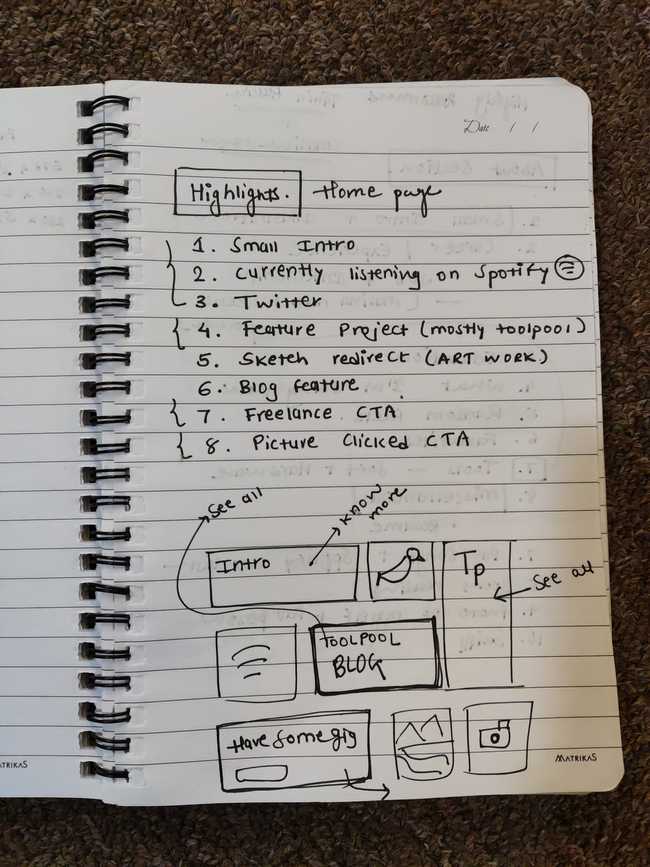 Date / /
Highlights. Home page
1. Small Intro
2. Currently listening on Spotify
3. Twitter
4. Feature Project (mostly toolpool)
5. Sketch redirect (ART WORK)
6. Blog feature
7. Freelance CTA
8. Picture Clicked CTA
See all
Know more
Intro
Tp
See all
TOOLPOOL
BLOG
Have some gig
MATRIKAS